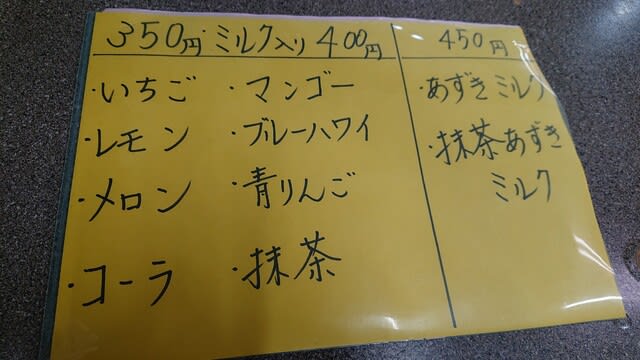 350円・ミルク入り400円
・いちご ・マンゴー
・レモン ・ブルーハワイ
・メロン ・青りんご
・コーラ ・抹茶
450円
・あずきミルク
・抹茶あずき
ミルク